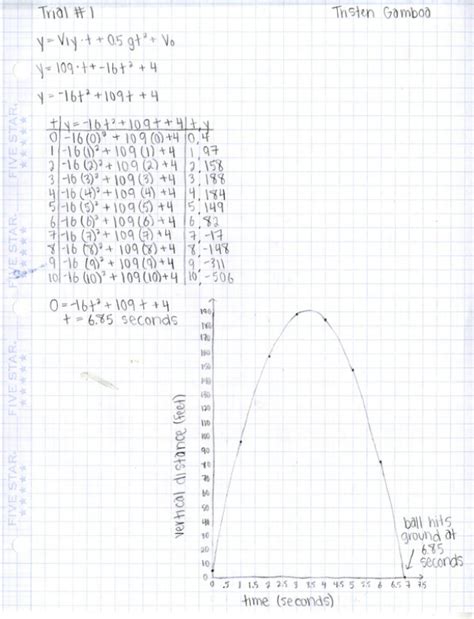 Trial #1
Tristen Gamboa
y = V1y·t + 0.5 gt² + V0
y = 109·t + -16t² + 4
y = -16t² + 109t + 4
t | y = -16t² + 109t + 4 | t, y
0 | -16(0)² + 109(0)+4 | 0, 4
1 | -16(1)² + 109(1)+4 | 1, 97
2 | -16(2)² + 109(2)+4 | 2, 158
3 | -16(3)² + 109(3)+4 | 3, 188
4 | -16(4)² + 109(4)+4 | 4, 184
5 | -16(5)² + 109(5)+4 | 5, 149
6 | -16(6)² + 109(6)+4 | 6, 82
7 | -16(7)² + 109(7)+4 | 7, -17
8 | -16(8)² + 109(8)+4 | 8, -148
9 | -16(9)² + 109(9)+4 | 9, -311
10 | -16(10)² + 109(10)+4 | 10, -506
0 = -16t² + 109t + 4
t = 6.85 seconds
vertical distance (feet)
190
180
170
160
150
140
130
120
110
100
90
80
70
60
50
40
30
20
10
0 .5 1 1.5 2 2.5 3 3.5 4 4.5 5 5.5 6 6.5 7 7.5
time (seconds)
ball hits
ground at
6.85
seconds
FIVE STAR.
FIVE STAR.
FIVE STAR.
FIVE STAR.